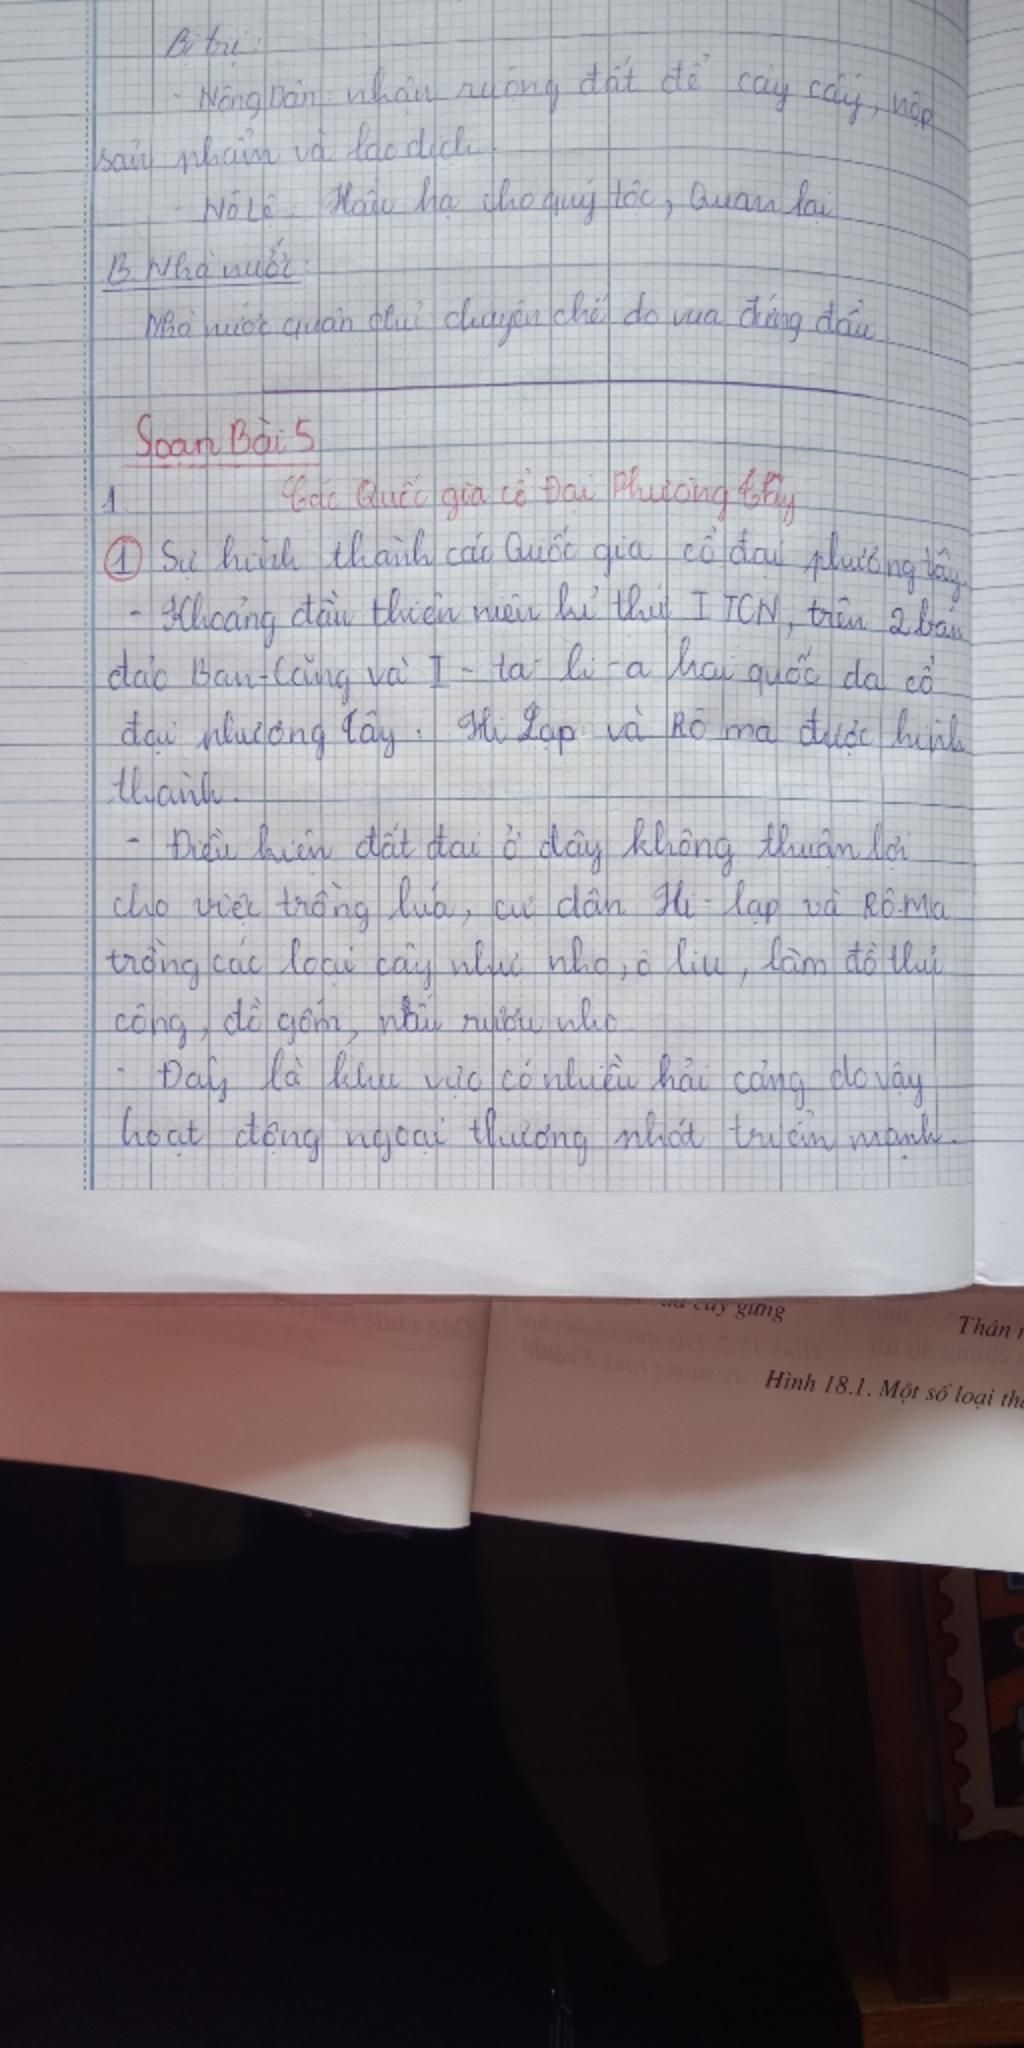 Bị trị:
- Nông Dân: nhận ruộng đất để cày cấy, nộp
sản phẩm và lao dịch
- Nô Lệ: Hầu hạ cho quý tộc, Quan lại
B. Nhà nước:
Nhà nước quân chủ chuyên chế do vua đứng đầu
Soạn Bài 5
1. Các Quốc gia cổ Đại Phương tây
① Sự hình thành các Quốc gia cổ đại phương tây
- Khoảng đầu thiên niên kỉ thứ I TCN, trên 2 bán
đảo Ban-Căng và I-ta-li-a hai quốc da cổ
đại phương tây: Hi Lạp và Rô ma được hình
thành.
- Điều kiện đất đai ở đây không thuận lợi
cho việc trồng lúa, cư dân Hi-lạp và Rô-Ma
trồng các loại cây như nho, ô liu, làm đồ thủ
công, đồ gốm, nấu rượu nho
- Đây là khu vực có nhiều hải cảng do vậy
hoạt động ngoại thương phát triển mạnh.
cây gừng
Thân
Hình 18.1. Một số loại